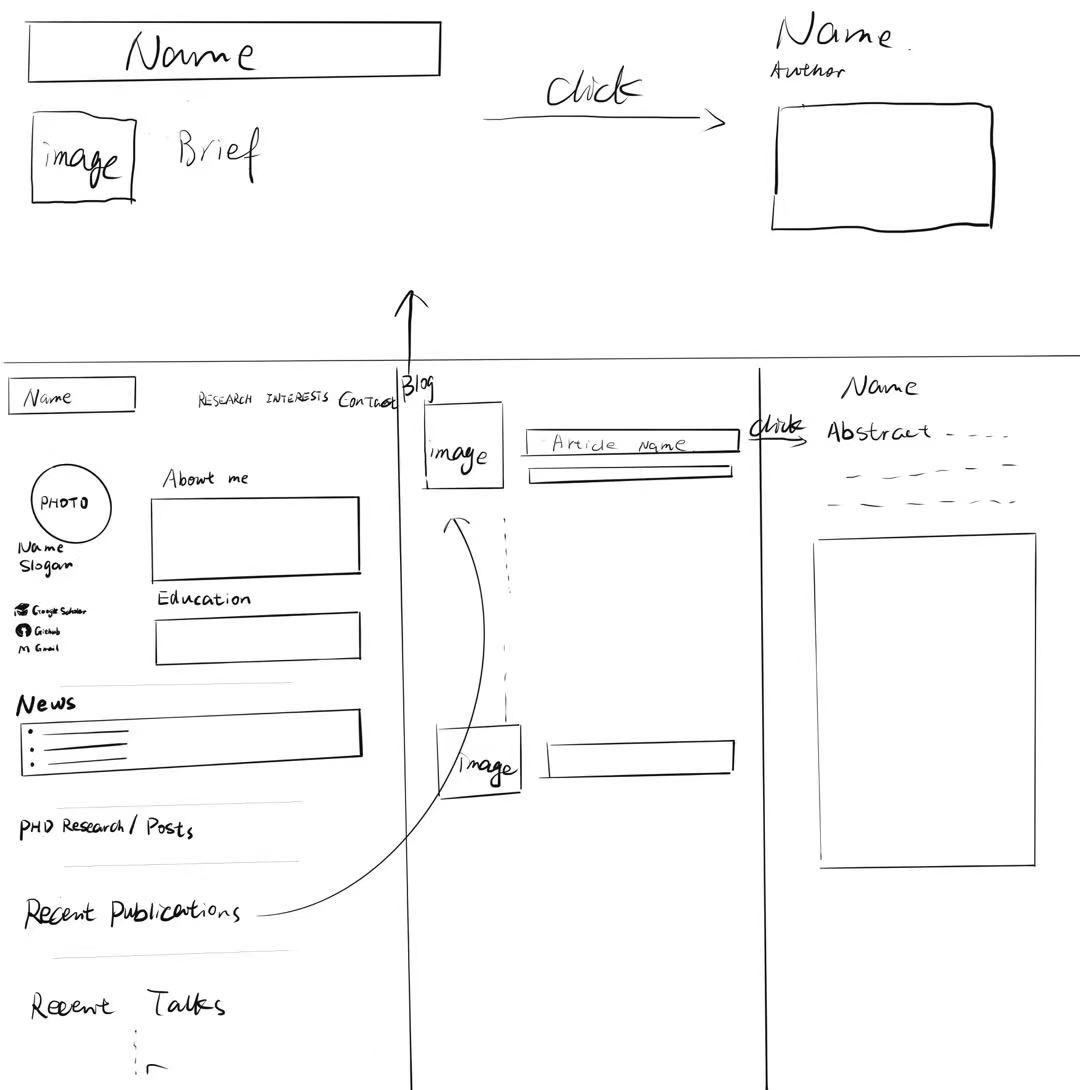 Name
image
Brief
Click
Name.
Author
Name
RESEARCH INTERESTS Contact Blog
PHOTO
Name
Slogan
Google Scholar
Github
M Gmail
About me
Education
News
PHD Research / Posts
Recent Publications
Recent Talks
image
Article name
image
Click
Name
Abstract